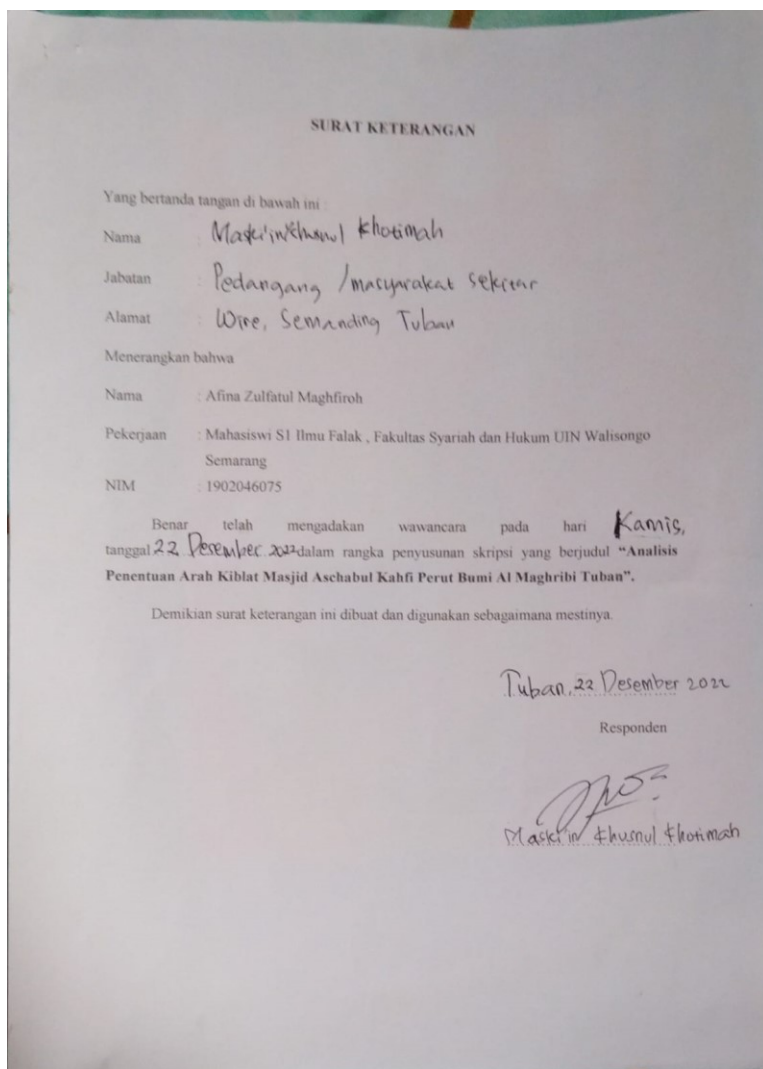 SURAT KETERANGAN
Yang bertanda tangan di bawah ini :
Nama : Maski'in Khusnul Khotimah
Jabatan : Pedangang / masyarakat sekitar
Alamat : Wire, Semanding Tuban
Menerangkan bahwa
Nama : Afina Zulfatul Maghfiroh
Pekerjaan : Mahasiswi S1 Ilmu Falak , Fakultas Syariah dan Hukum UIN Walisongo
Semarang
NIM : 1902046075
Benar telah mengadakan wawancara pada hari Kamis,
tanggal 22 Desember 2022 dalam rangka penyusunan skripsi yang berjudul “Analisis
Penentuan Arah Kiblat Masjid Aschabul Kahfi Perut Bumi Al Maghribi Tuban”.
Demikian surat keterangan ini dibuat dan digunakan sebagaimana mestinya.
Tuban, 22 Desember 2022
Responden
Maski'in Khusnul Khotimah